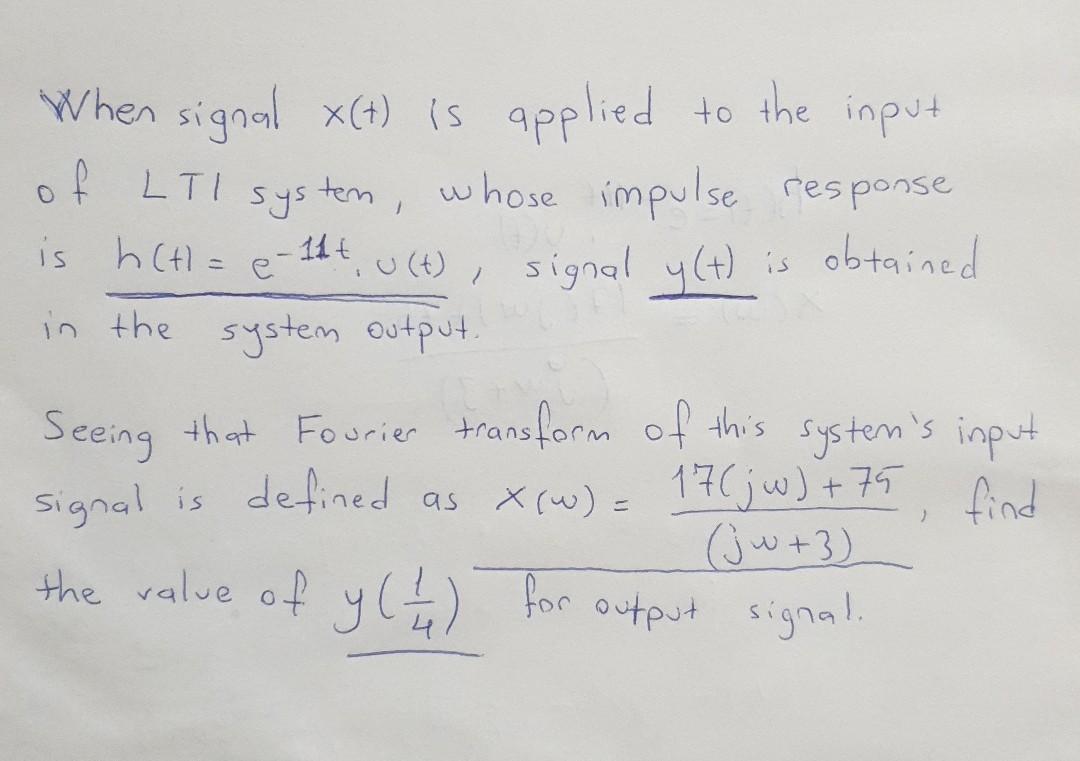 When signal x(t) is applied to the input
of LTI system, whose impulse response
is h(t) = e^-11t . u(t), signal y(t) is obtained
in the system output.
Seeing that Fourier transform of this system's input
signal is defined as X(w) = 17(jw)+75 / (jw+3), find
the value of y(1/4) for output signal.